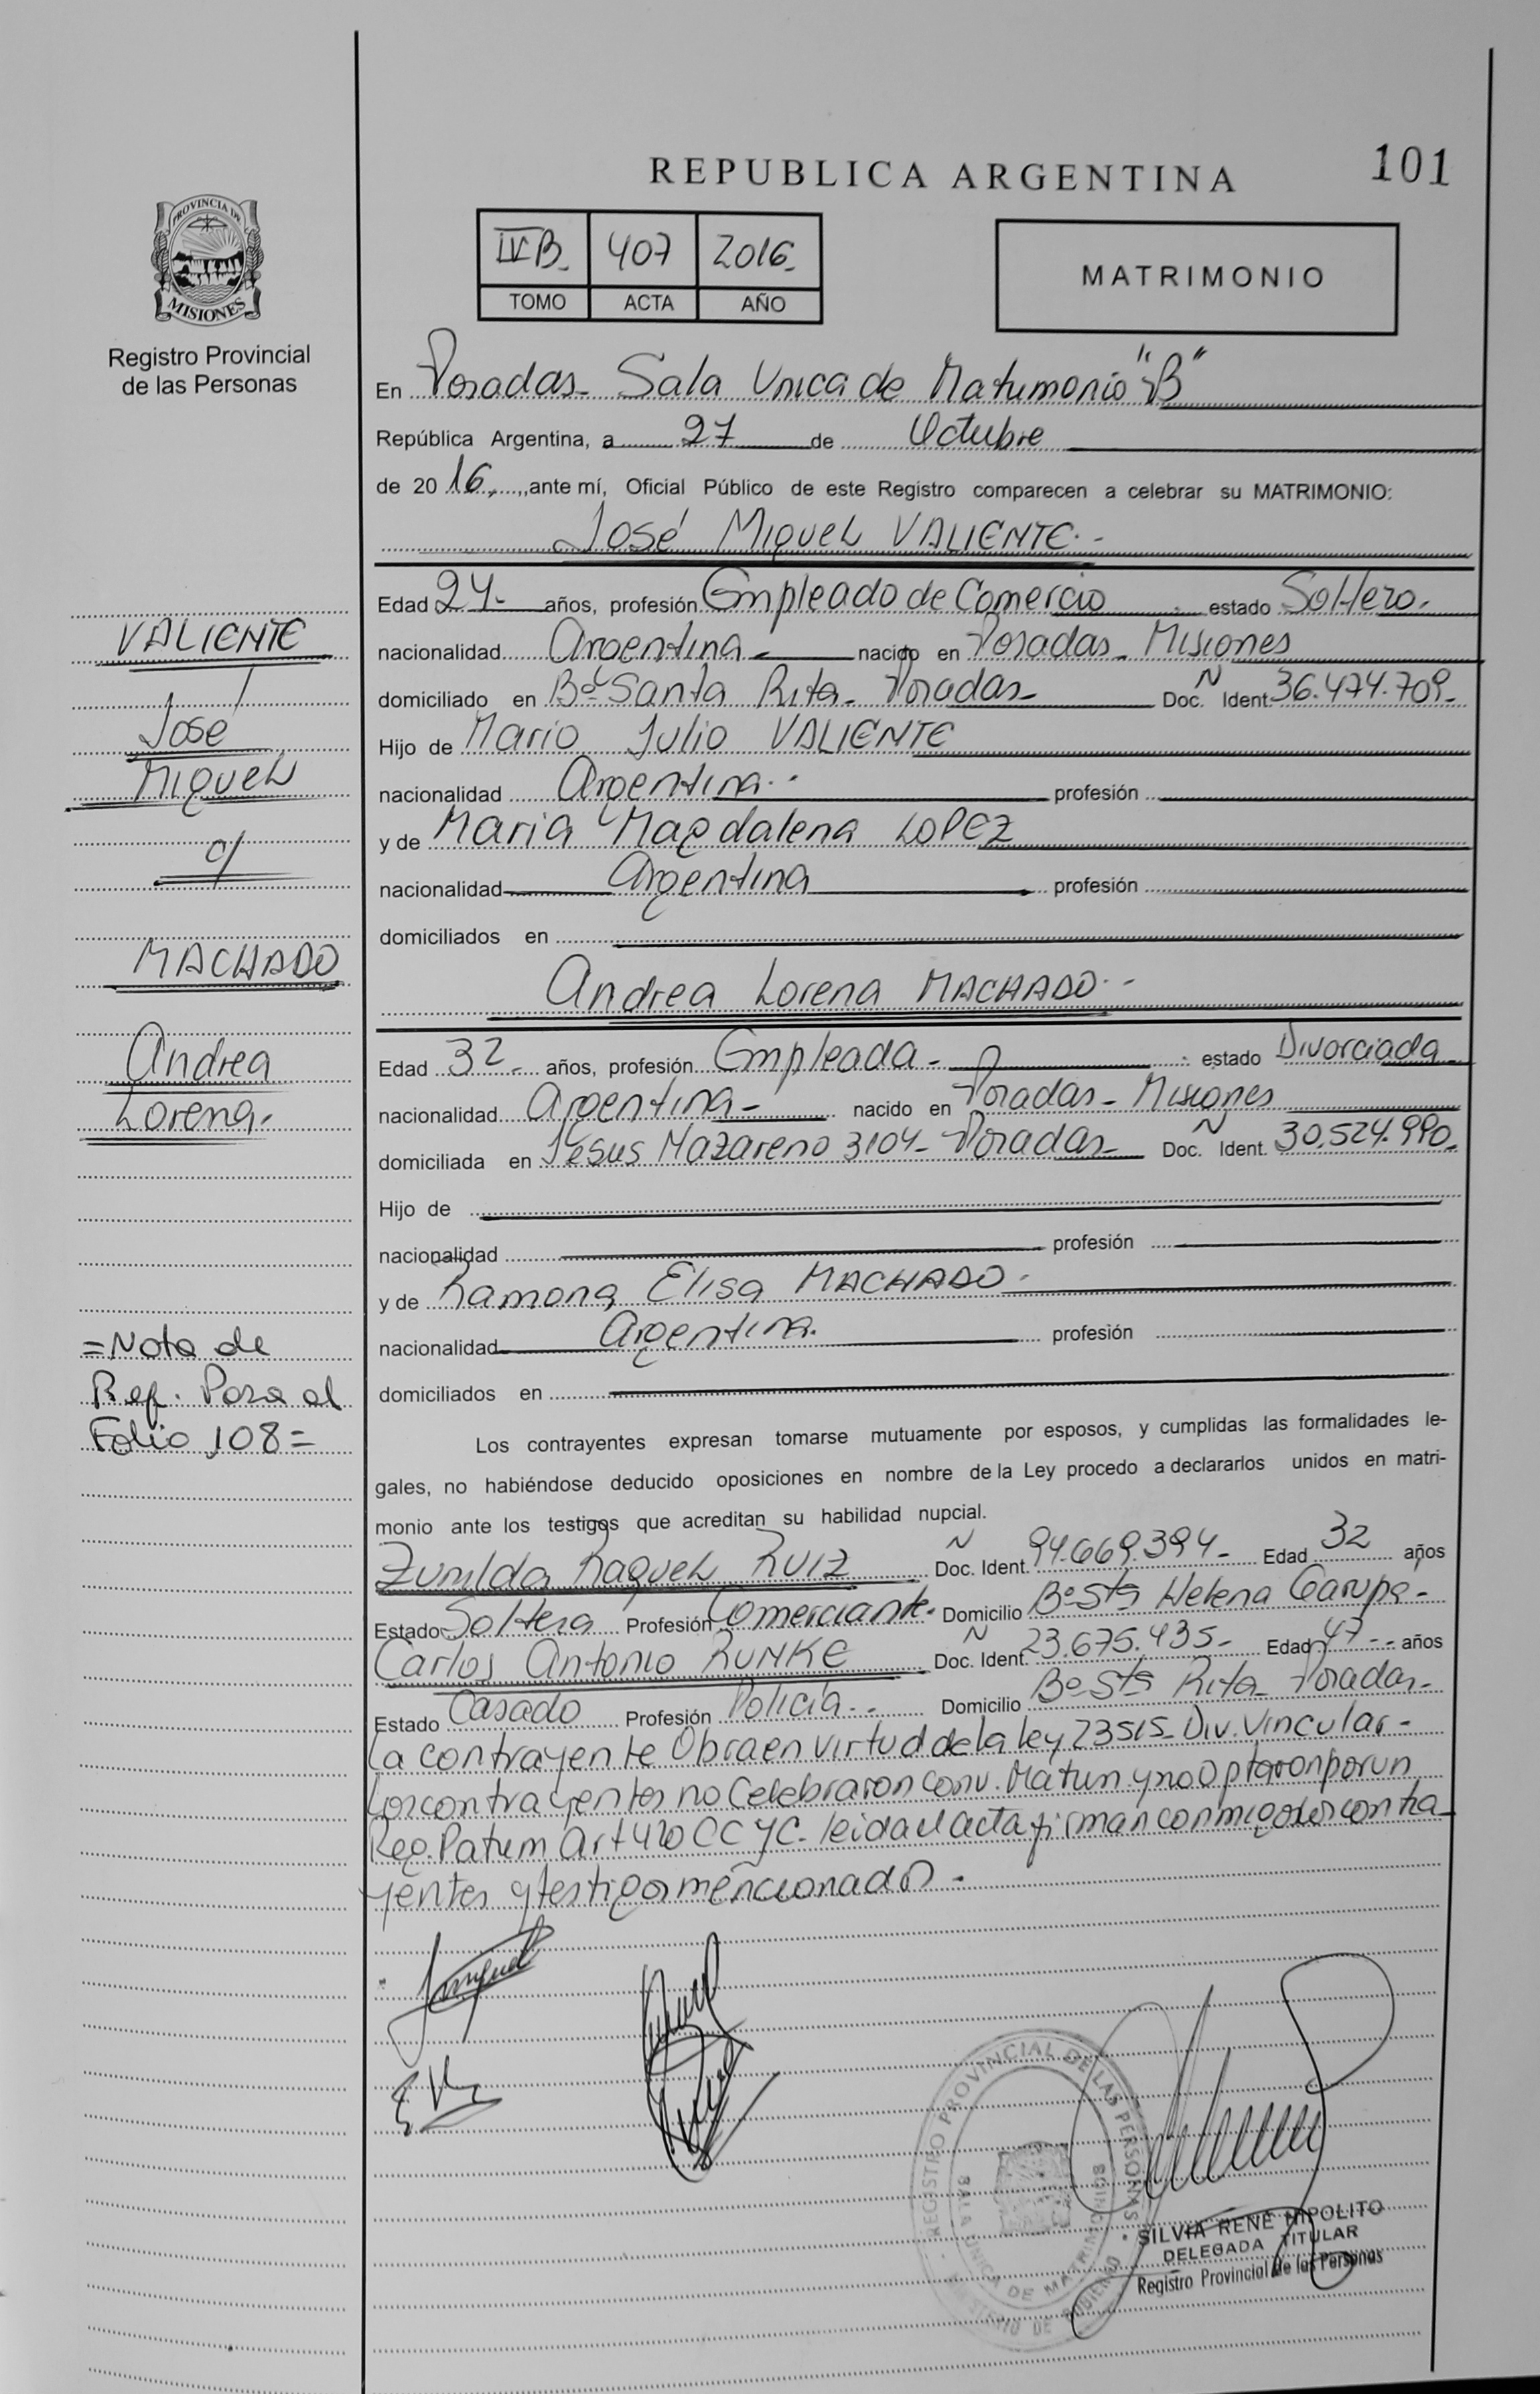 REPUBLICA ARGENTINA
101
PROVINCIA DE
MISIONES
Registro Provincial
de las Personas
IV B. 407 2016.
TOMO ACTA AÑO
MATRIMONIO
En Posadas - Sala Unica de Matrimonio "B"
República Argentina, a 27 de Octubre
de 20 16, ante mí, Oficial Público de este Registro comparecen a celebrar su MATRIMONIO:
José Miguel VALIENTE.-
Edad 24- años, profesión Empleado de Comercio estado Soltero.
nacionalidad Argentina - nacido en Posadas - Misiones
domiciliado en Bº Santa Rita - Posadas - Doc. N Ident. 36.474.709-
Hijo de Mario Julio VALIENTE
nacionalidad Argentina.- profesión
y de Maria Magdalena LOPEZ
nacionalidad Argentina profesión
domiciliados en
Andrea Lorena MACHADO.-
Edad 32 - años, profesión Empleada - estado Divorciada
nacionalidad Argentina - nacido en Posadas - Misiones
domiciliada en Jesus Nazareno 3104 - Posadas - Doc. N Ident. 30.524.990-
Hijo de
nacionalidad profesión
y de Ramona Elisa MACHADO -
nacionalidad Argentina. profesión
domiciliados en
Los contrayentes expresan tomarse mutuamente por esposos, y cumplidas las formalidades le-
gales, no habiéndose deducido oposiciones en nombre de la Ley procedo a declararlos unidos en matri-
monio ante los testigos que acreditan su habilidad nupcial.
Zunilda Raquel RUIZ Doc. N Ident. 94.669.394- Edad 32 años
Estado Soltera Profesión Comerciante. Domicilio Bº Sta Helena Garupa -
Carlos Antonio RUNKE Doc. N Ident. 23.675.435- Edad 47-- años
Estado Casado Profesión Policía.- Domicilio Bº Sta Rita - Posadas -
La contrayente Obra en virtud de la ley 23515 - Div. Vincular -
Los contrayentes no Celebraron conv. Matrim. y no Optaron por un
Reg. Patrim Art 420 CC y C. leida el acta firman conmigo los contra
yentes y testigos mencionados -
VALIENTE
José
Miguel
c/
MACHADO
Andrea
Lorena-
=Nota de
Ref. Pasa al
Folio 108=
REGISTRO PROVINCIAL DE LAS PERSONAS
SALA UNICA DE MATRIMONIOS
MINISTERIO DE GOBIERNO
SILVIA RENÉ HIPOLITO
DELEGADA TITULAR
Registro Provincial de las Personas